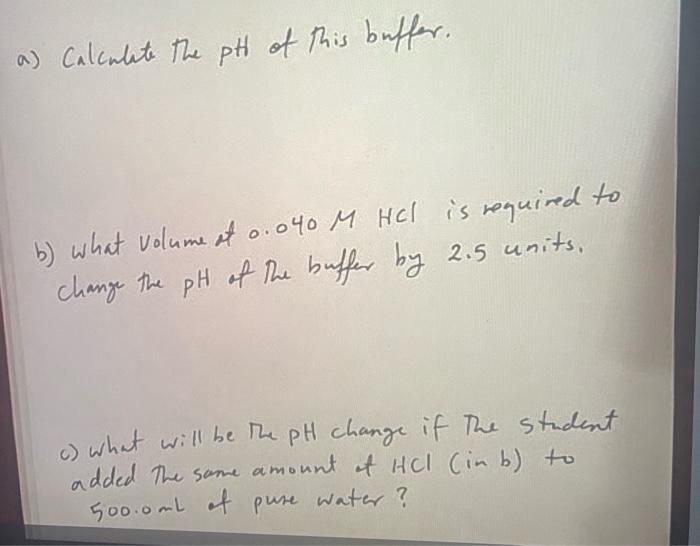 a) Calculate The pH of This buffer.
b) what volume of 0.040 M HCl is required to
change the pH of The buffer by 2.5 units.
c) what will be The pH change if The student
added The same amount of HCl (in b) to
500.0 mL of pure water?